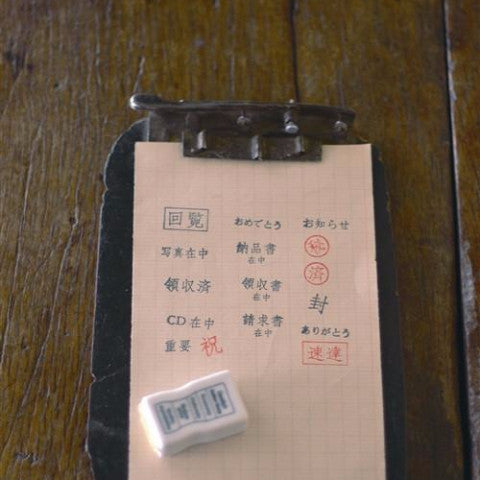 回覧
おめでとう
お知らせ
写真在中
納品書
在中
領収済
領収書
在中
済
封
CD在中
請求書
在中
ありがとう
重要
祝
速達